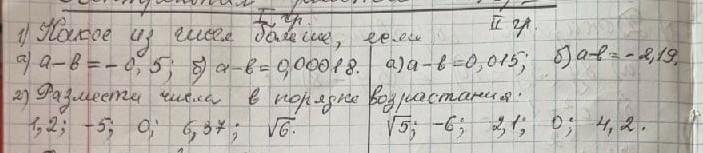 I гр. II гр.
1) Какое из чисел больше, если
а) а-в=-0,5; б) а-в=0,00018. а) а-в=0,015; б) а-в=-2,19.
2) Размести числа в порядке возрастания:
1,2; -5; 0; 6,37; √6. √5; -6; 2,1; 0; 4,2.